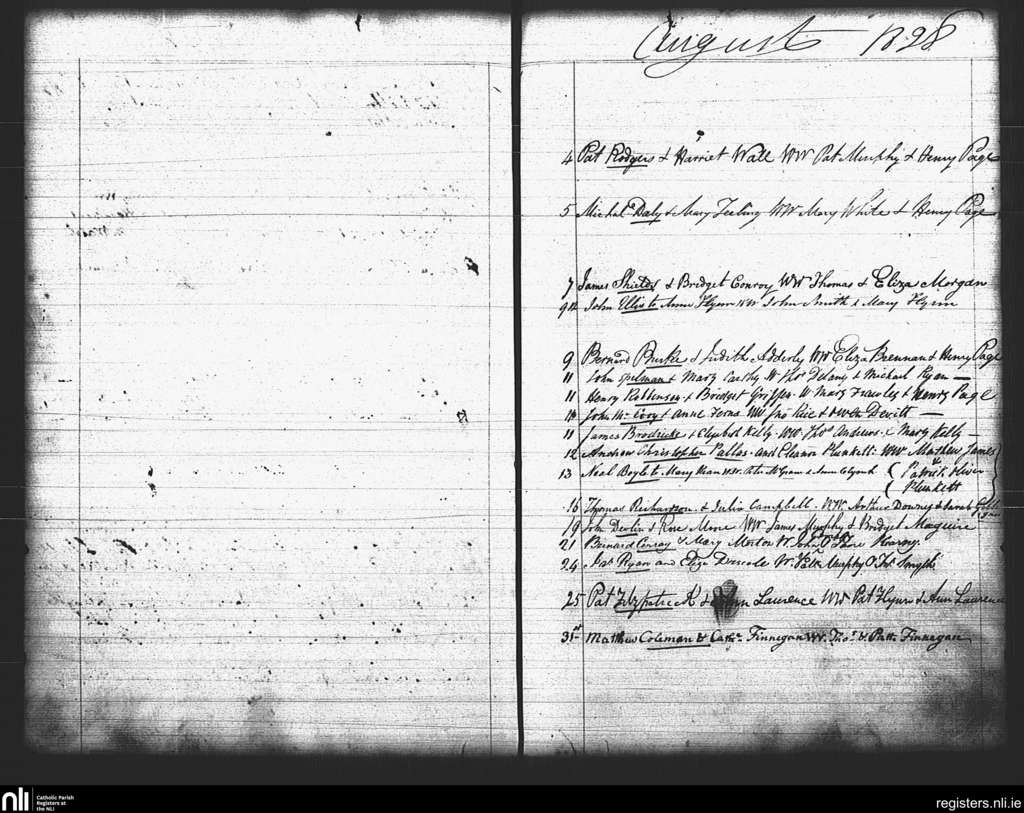 August 1828
4 Pat Rodgers & Harriet Wall WW Pat Murphy & Henry Page
5 Michal Daly & Mary Feeling WW Mary White & Henry Page
7 James & Bridget Conroy WW Thomas & Eliza Morgan
9th John Ellis to Anne Flynn WW John Smith & Mary Flynn
9 Bernard Burke & Judith Adderly WW Eliza Brennan & Henry Page
11 John Spelman & Mary Carthy W Thos Delany & Michael Ryan —
11 Henry Robbinson & Bridget Griffen W Mary Frawley & Henry Page
John & Anne Ferns WW Jno Rice & Devitt —
11 James Brodricke & Elizabeth Kelly WW Thos Andrews & Mary Kelly —
12 Andrew Christopher Pallas and Eleanor Plunkett WW Mathew James
13 Neal Boyle to Mary WW & Anne Patrick Oliver
Plunkett
16 Thomas Richardson & Julia Campbell WW Arthur Downey & Sarah
19 John Devlin & Rose Mone WW James Murphy & Bridget Maguire
21 Bernard Conray & Mary Morton W John & Kearney
24 Pat Ryan and Eliza Driscole W Patk Murphy & Jos Smythe
25 Pat Fitzpatrick & Ann Laurence WW Pat Flynn & Ann Laurence
31st Matthew Coleman & Cathe Finnegan WW Thos & Patt Finnagan
nli
Catholic Parish
Registers at
the NLI
registers.nli.ie